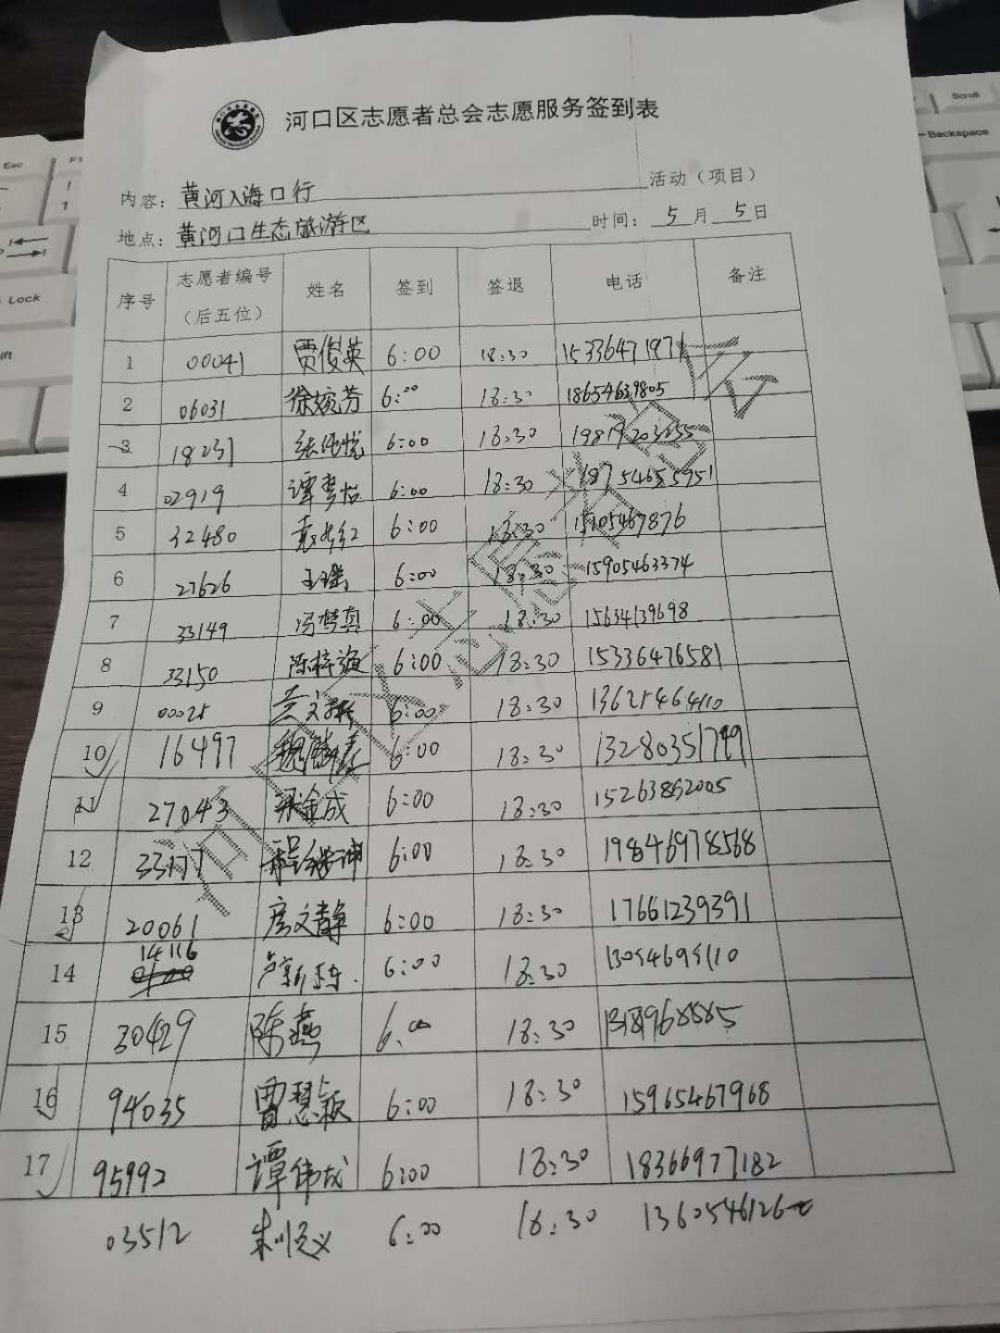 河口区志愿者总会志愿服务签到表
内容：黄河入海口行 活动（项目）
地点：黄河口生态旅游区 时间：5月5日
序号 志愿者编号（后五位） 姓名 签到 签退 电话 备注
1 00041 贾俊英 6:00 18:30 15336471971
2 06031 徐婉芳 6:00 18:30 18654639805
3 18231 6:00 18:30 19819203255
4 02919 谭梦怡 6:00 18:30 18754685951
5 32480 6:00 18:30 15105467876
6 27626 王璨 6:00 18:30 15905463374
7 33149 冯梦真 6:00 18:30 15634139698
8 33150 陈梓涵 6:00 18:30 15336476581
9 00025 6:00 18:30 13621464110
10 16497 6:00 18:30 13280351749
11 27043 梁金成 6:00 18:30 15263862005
12 6:00 18:30 19846978568
13 20061 房文静 6:00 18:30 17661239391
14 14116 6:00 18:30 13054694110
15 30429 陈燕 6:00 18:30
16 94035 贾慧颖 6:00 18:30 15965467968
17 95992 谭伟成 6:00 18:30 18366977182
03512 朱顺义 6:00 18:30
Esc
F1
Lock
Scroll
Backspace